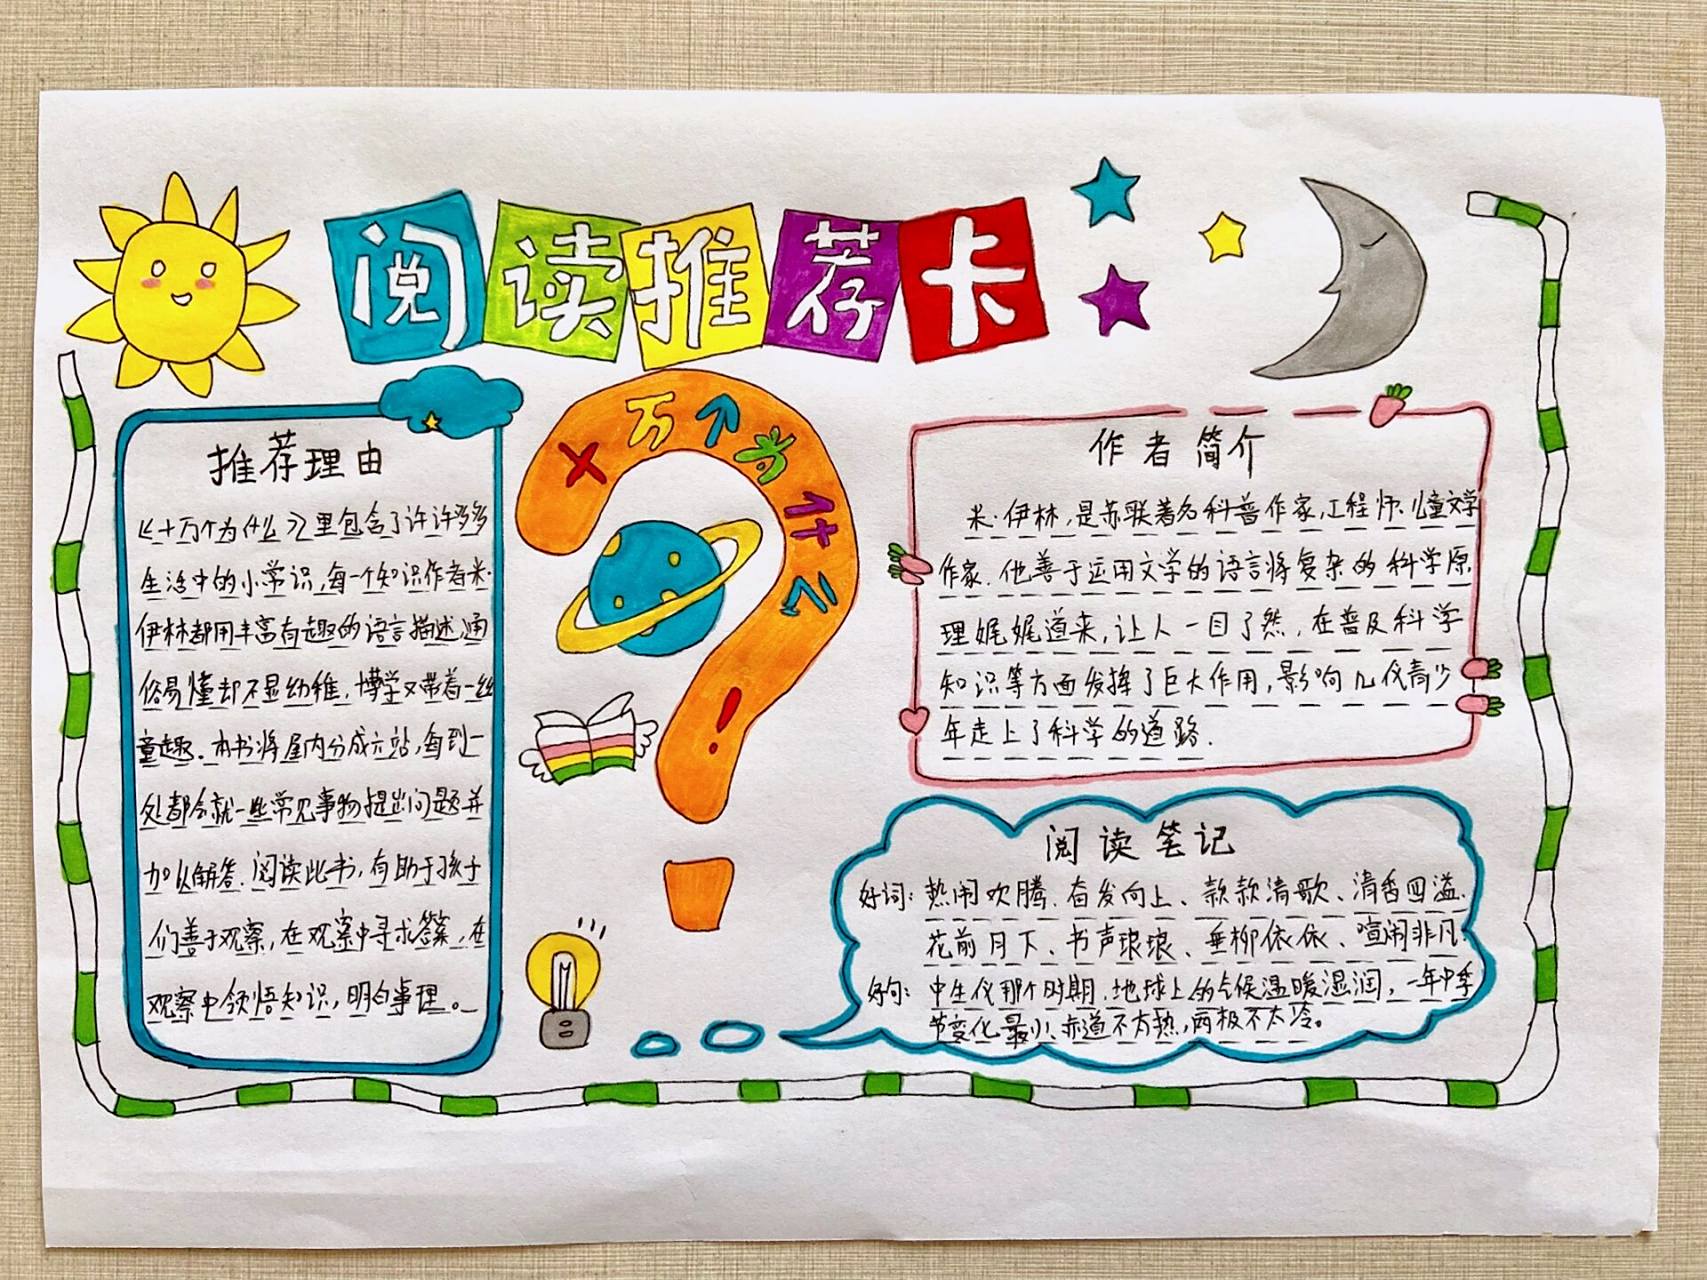 阅读推荐卡
十万个为什么
!
推荐理由
《十万个为什么》里包含了许许多多
生活中的小常识,每一个知识作者米·
伊林都用丰富有趣的语言描述,通
俗易懂却不显幼稚,博学又带着一丝
童趣.本书将屋内分成六站,每到一
处都会就一些常见事物提出问题并
加以解答.阅读此书,有助于孩子
们善于观察,在观察中寻求答案,在
观察中领悟知识,明白事理。
作者简介
米·伊林,是苏联著名科普作家,工程师、儿童文学
作家.他善于运用文学的语言将复杂的科学原
理娓娓道来,让人一目了然,在普及科学
知识等方面发挥了巨大作用,影响几代青少
年走上了科学的道路.
阅读笔记
好词:热闹欢腾、奋发向上、款款清歌、清香四溢、
花前月下、书声琅琅、垂柳依依、喧闹非凡.
好句:中生代那个时期,地球上的气候温暖湿润,一年中季
节变化最小、赤道不方热,两极不太冷。